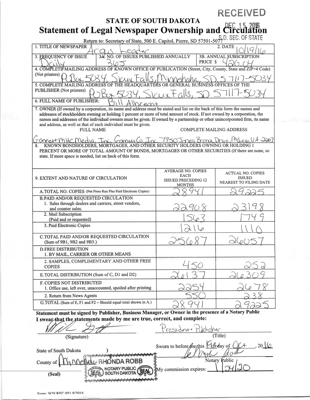 RECEIVED
DEC 15 2016
S.D. SEC. OF STATE
STATE OF SOUTH DAKOTA
Statement of Legal Newspaper Ownership and Circulation
Return to: Secretary of State, 500 E. Capitol, Pierre, SD 57501-5077
1. TITLE OF NEWSPAPER
Argus Leader
2. DATE
10/19/16
3. FREQUENCY OF ISSUE
Daily
3A. NO. OF ISSUES PUBLISHED ANNUALLY
365
3B. ANNUAL SUBSCRIPTION PRICE $
4. COMPLETE MAILING ADDRESS OF KNOWN OFFICE OF PUBLICATION (Street, City, County, State and ZIP+4 Code) (Not printers)
PO Box 5034, Sioux Falls, Minnehaha, SD 57117-5034
5. COMPLETE MAILING ADDRESS OF THE HEADQUARTERS OF GENERAL BUSINESS OFFICES OF THE PUBLISHER (Not printers)
PO Box 5034, Sioux Falls, SD 57117-5034
6. FULL NAME OF PUBLISHER:
Bill Albrecht
7. OWNER (If owned by a corporation, its name and address must be stated and list on the back of this form the names and addresses of stockholders owning or holding 1 percent or more of total amount of stock. If not owned by a corporation, the names and addresses of the individual owners must be given. If owned by a partnership or other unincorporated firm, its name and address, as well as that of each individual must be given.
FULL NAME
COMPLETE MAILING ADDRESS
8. KNOWN BONDHOLDERS, MORTGAGES, AND OTHER SECURITY HOLDERS OWNING OR HOLDING 1 PERCENT OR MORE OF TOTAL AMOUNT OF BONDS, MORTGAGES OR OTHER SECURITIES (If there are none, so state. If more space is needed, list on back of this form.
9. EXTENT AND NATURE OF CIRCULATION
AVERAGE NO. COPIES EACH ISSUED PRECEDING 12 MONTHS
ACTUAL NO. COPIES ISSUED NEAREST TO FILING DATE
A. TOTAL NO. COPIES (Net Press Run Plus Paid Electronic Copies)
28941
29225
B. PAID AND/OR REQUESTED CIRCULATION
1. Sales through dealers and carriers, street vendors, and counter sales.
22908
23198
2. Mail Subscription (Paid and or requested)
1563
1749
3. Paid Electronic Copies
1216
1110
C. TOTAL PAID AND/OR REQUESTED CIRCULATION (Sum of 9B1, 9B2 and 9B3.)
25687
26057
D. FREE DISTRIBUTION
1. BY MAIL, CARRIER OR OTHER MEANS
2. SAMPLES, COMPLIMENTARY AND OTHER FREE COPIES
450
252
E. TOTAL DISTRIBUTION (Sum of C, D1 and D2)
26137
26309
F. COPIES NOT DISTRIBUTED
1. Office use, left over, unaccounted, spoiled after printing
2254
2678
2. Return from News Agents
550
238
G. TOTAL (Sum of E, F1 and F2 - Should equal total shown in A.)
28941
29225
Statement must be signed by Publisher, Business Manager, or Owner in the presence of a Notary Public
I swear that the statements made by me are true, correct, and complete:
President + Publisher
(Title)
State of South Dakota
Sworn to before me this
day of Oct 2016
County of Minnehaha
Notary Public
(Seal)
RHONDA ROBB
NOTARY PUBLIC
SOUTH DAKOTA
SEAL
My commission expires: